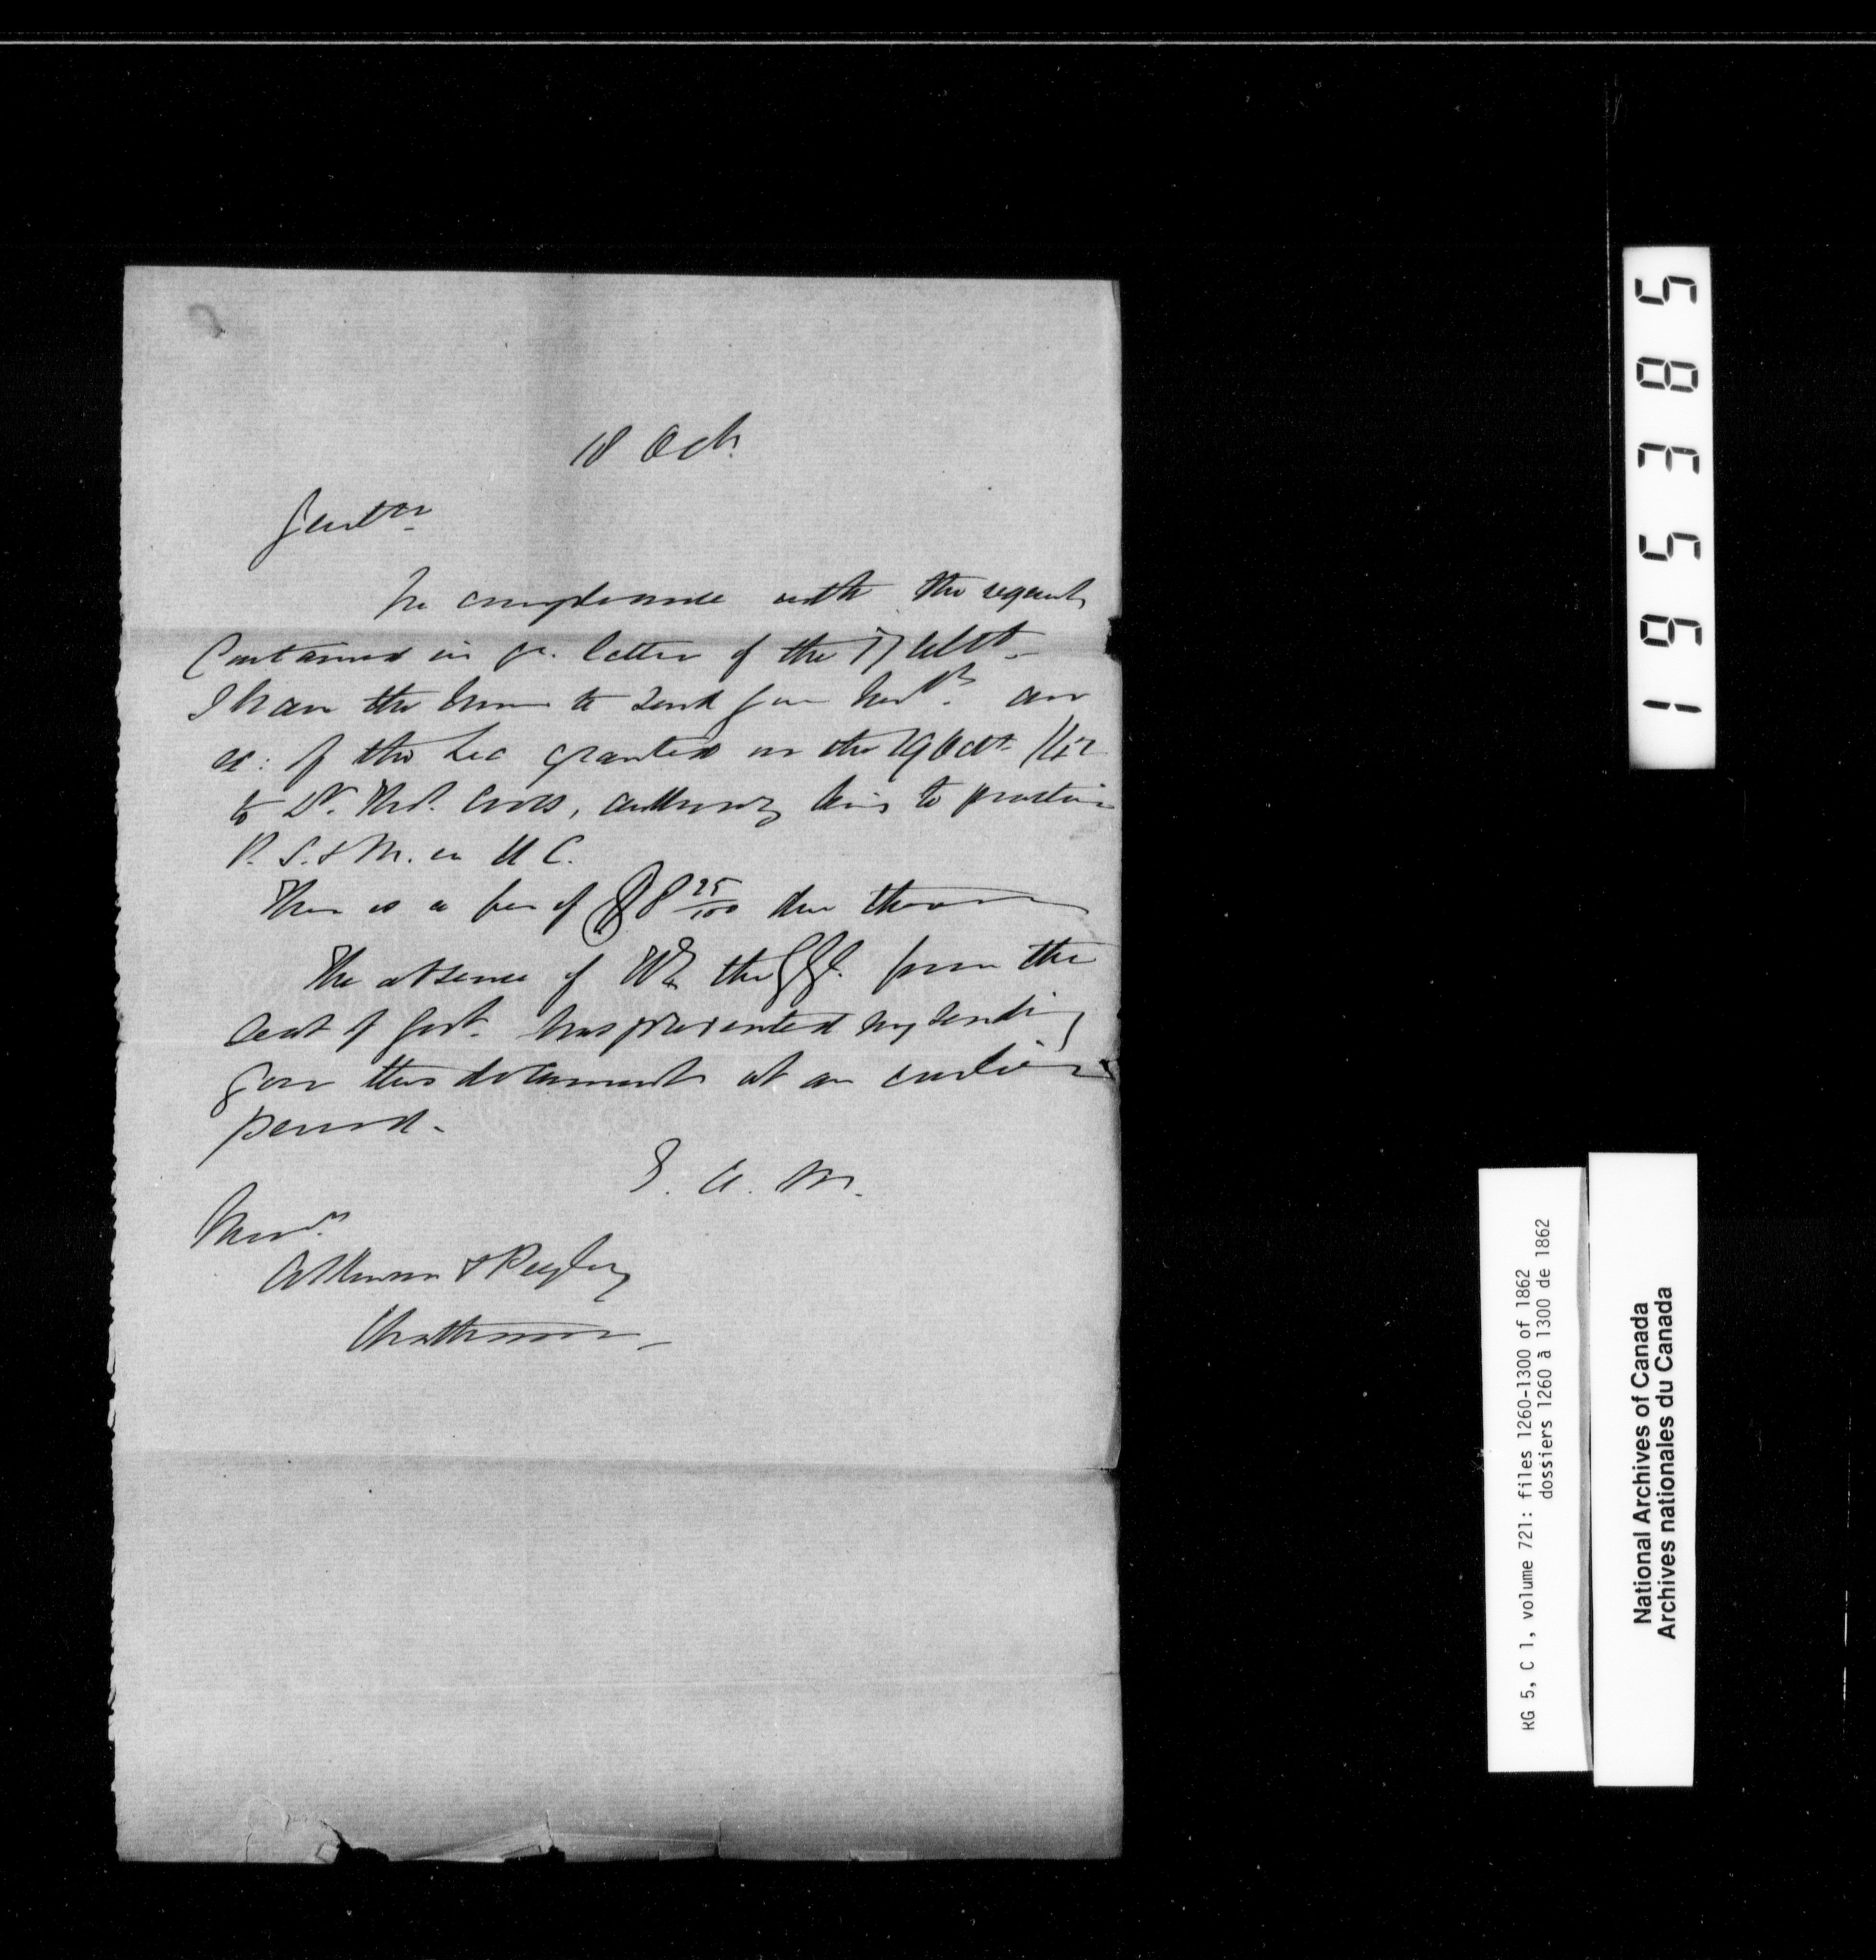 18 Oct.
Gentn
In compliance with the request
Contained in yr. letter of the 17 Ulto.
I have the honor to send you herewth. an
of the Lic granted on the 29 Octr
to Dr. Thos. Cross, authorizg him to practice
P. S. & M. in U C.
There is a fee of $8 25/100 due thereon
The absence of the GG. from the
Seat of Govt. has prevented my sending
you this document at an earlier
period.
E. A. M.
Messrs.
Atkinson & Pegley
Chatham
195385
RG 5, C 1, volume 721: files 1260-1300 of 1862
dossiers 1260 à 1300 de 1862
National Archives of Canada
Archives nationales du Canada